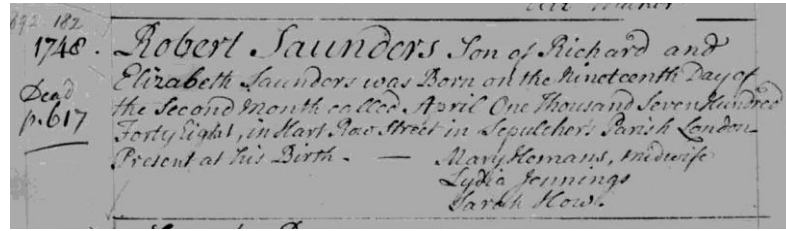 892 182
1748. Robert Saunders Son of Richard and
Elizabeth Saunders was Born on the Nineteenth Day of
Dead
the Second Month called April One Thousand Seven Hundred
p. 617
Forty Eight, in Hart Row Street in Sepulcher's Parish London
Present at his Birth. — Mary Hemans, Midwife
Lydia Jennings
Sarah How.